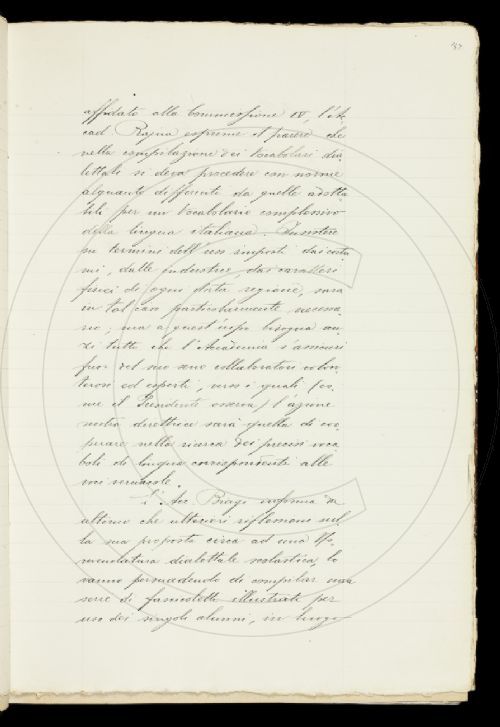 affidato alla Commessione IV, l'A.
cad. Rajna esprime il parere che
nella compilazione dei Vocabolari dia
lettali si deva procedere con norme
alquanto differenti da quelle adotta
bili per un Vocabolario complessivo
della lingua italiana. Insistere
su termini dell'uso imposti dai costu
mi, dalle industrie, dai caratteri
fisici di ogni data regione, sarà
in tal caso particolarmente necessa
rio; ma a quest'uopo bisogna an
zi tutto che l'Accademia s'assicuri
fuor del suo seno collaboratori volon
terosi ed esperti, verso i quali (co
me il Presidente osserva) l'azione
nostra direttrice sarà quella di coo
perare nella ricerca dei precisi voca
boli di lingua corrispondenti alle
voci vernacole.
L'Acc. Biagi informa da
ultimo che ulteriori riflessioni sul
la sua proposta circa ad una No
menclatura dialettale scolastica, lo
vanno persuadendo di compilar una
serie di fascicoletti illustrati per
uso dei singoli alunni, in luogo